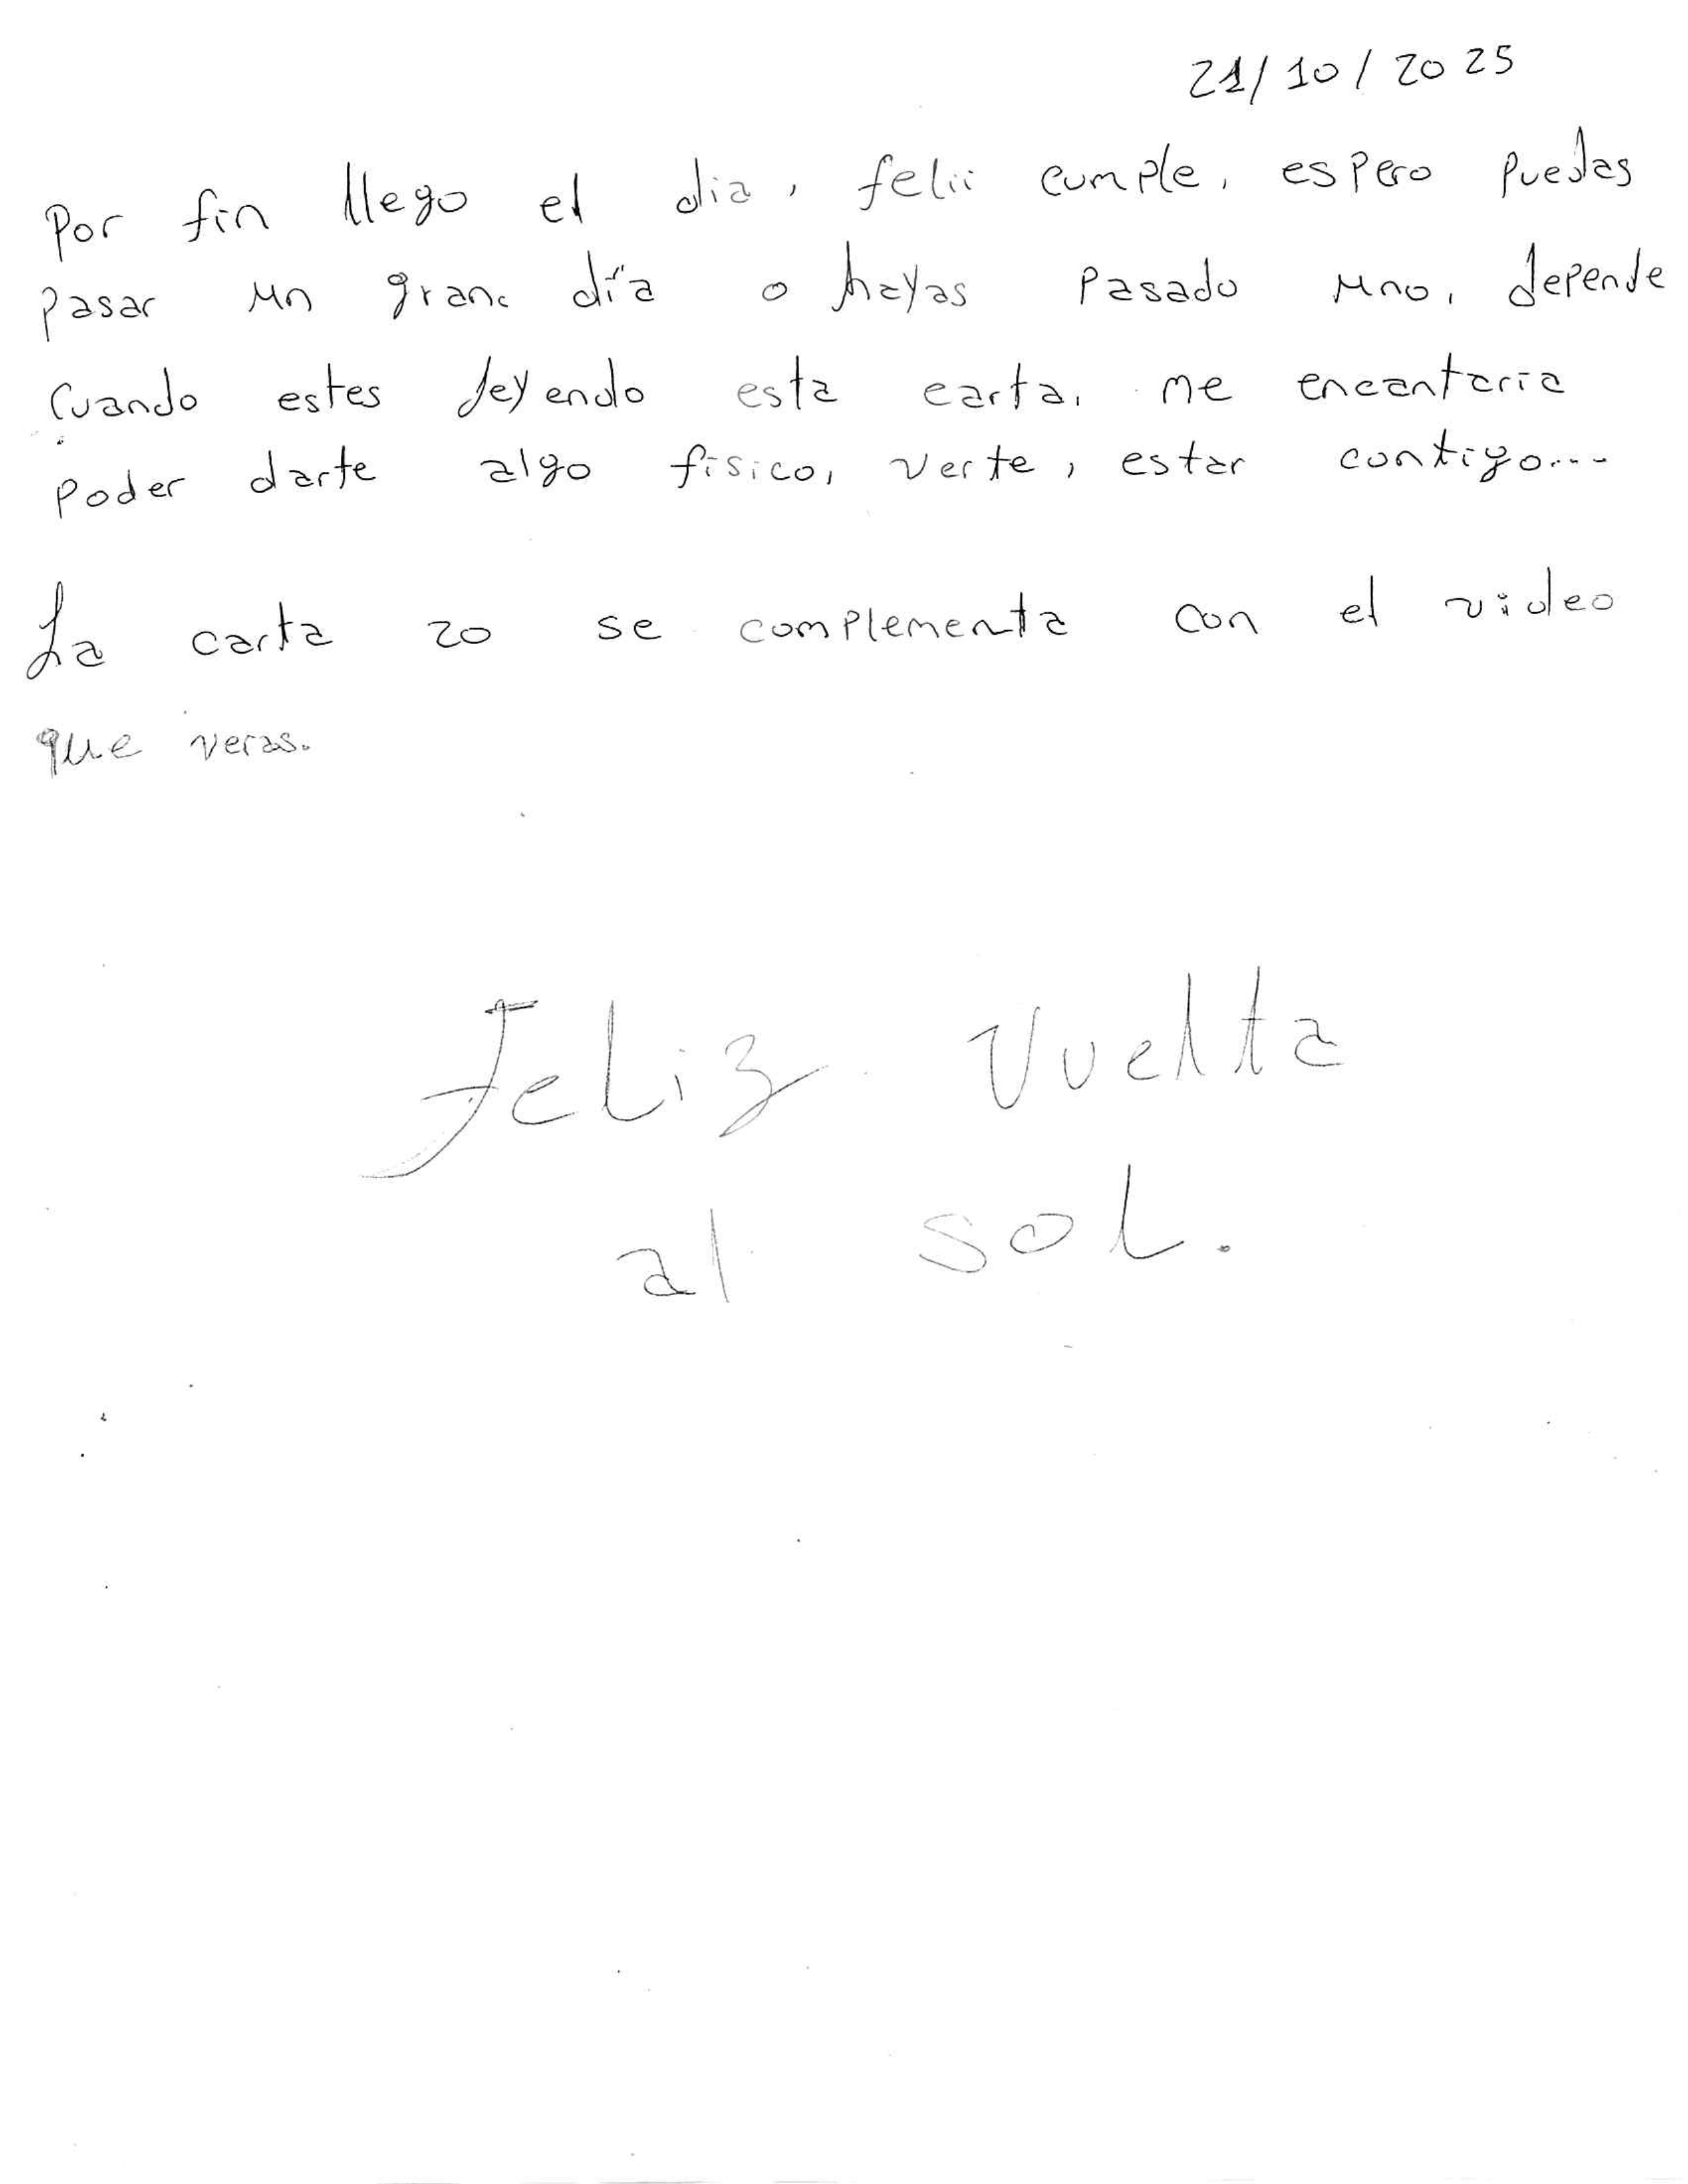 21/10/2025
Por fin llego el dia, felii cumple, espero puedas
pasar un gran día o hayas pasado uno, depende
cuando estes leyendo esta carta, me encantaria
poder darte algo fisico, verte, estar contigo...
La carta 20 se complementa con el video
que veras.
Feliz Vuelta
al sol.